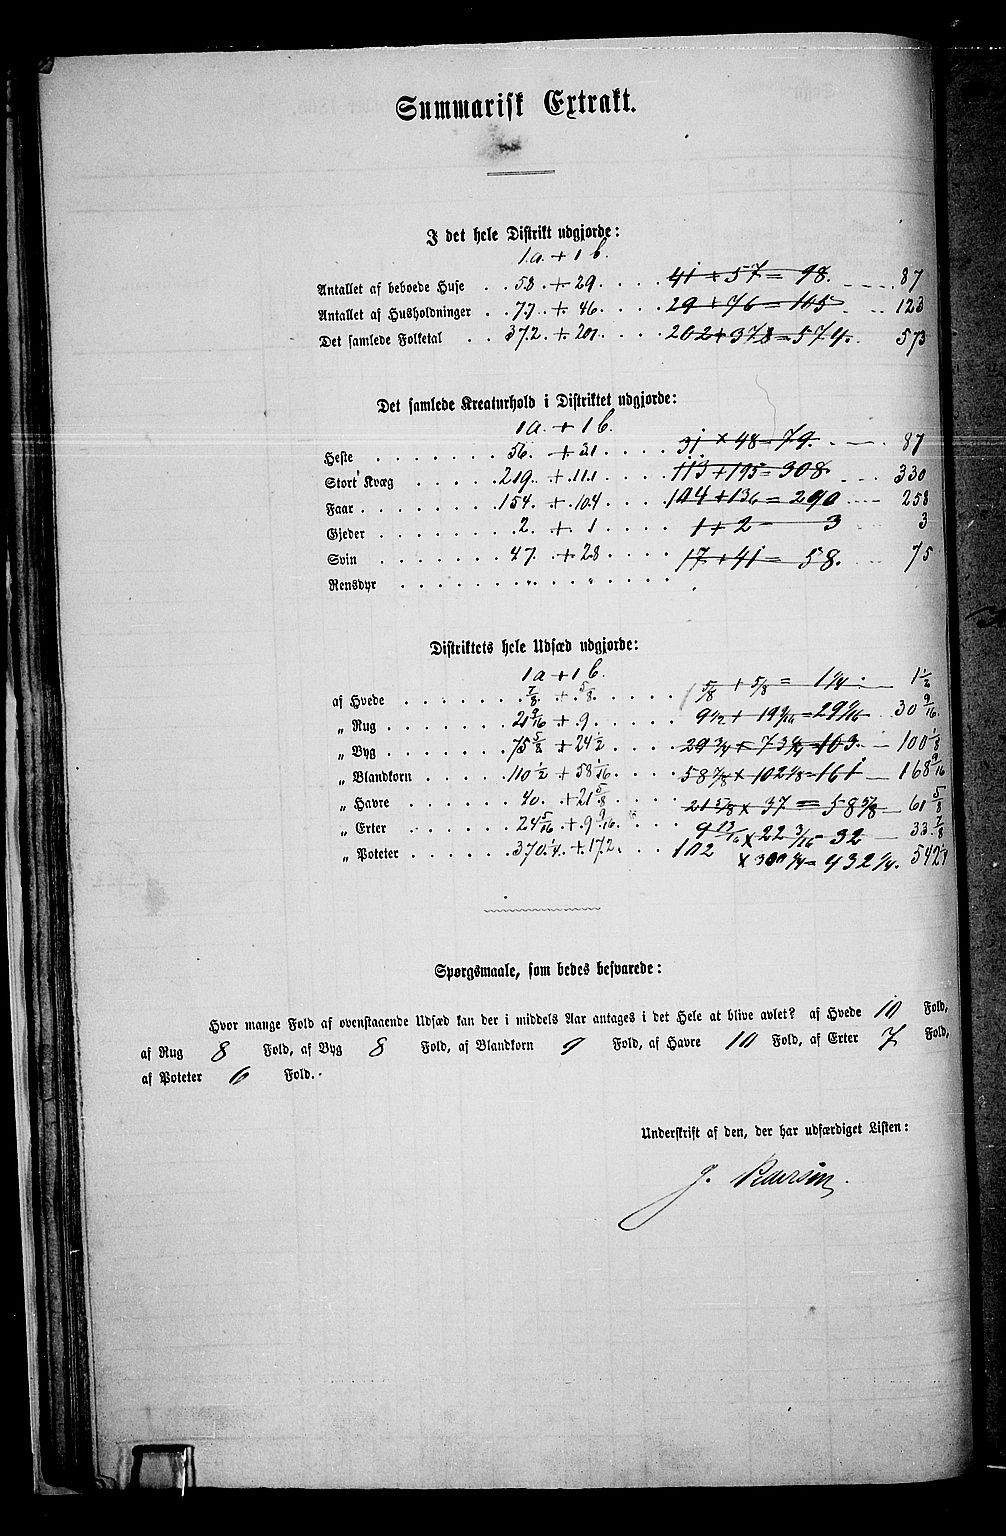 Summarisk Extrakt.
I det hele Distrikt udgjorde:
1a. + 1 b.
Antallet af beboede Huse . . 58 + 29. . . . . 41 + 57 = 98. . . . . 87
Antallet af Husholdninger . . 77 + 46. . . . . 29 + 76 = 105 . . . 123
Det samlede Folketal . . 372. + 201. . . . . 202 + 372 = 574. . . 573
Det samlede Kreaturhold i Distriktet udgjorde:
1a. + 1 b.
Heste . . . . . . . 56. + 31 . . . . 31 + 48 = 79. . . . 87
Stort Kvæg . . . . . 219. + 111 . . . . 113 + 195 = 308. . . . 330
Faar . . . . . . . 154. + 104 . . . . 104 + 136 = 240 . . . 258
Gjeder . . . . . . . 2. + 1 . . . . 1 + 2 = 3 3
Svin . . . . . . . 47. + 28 . . . . 17 + 41 = 58. . . . 75
Rensdyr . . . . . . . " . . . " . . . . .
Distriktets hele Udsæd udgjorde:
1a + 1 b.
af Hvede . . . . . . 7/8. + 5/8. . . . . 5/8 + 5/8 = 1 1/4. 1 1/2
„ Rug . . . . . . 21 9/16 + 9. . . . . 9 1/2 + 19 9/16 = 29 1/16 30 9/16.
„ Byg . . . . . . 75 5/8 + 24 1/2 . . . . 29 3/4 + 73 1/4 = 103. 100 1/8
„ Blandkorn . . . . . 110 1/2 + 58 1/16. . . . . 58 7/8 + 102 1/8 = 161 168 9/16
„ Havre . . . . . . 40. + 21 5/8 . . . . 21 5/8 + 37 = 58 5/8 61 5/8
„ Erter . . . . . . 24 5/16. + 9 9/16. . . . . 9 13/16 + 22 3/16 = 32 33. 7/8
„ Poteter . . . . . . 370 1/4. + 172. . . . 102 + 330 1/4 = 432 1/4. 542 1/4
Spørgsmaale, som bedes besvarede:
Hvor mange Fold af ovenstaaende Udsæd kan der i middels Aar antages i det Hele at blive avlet? af Hvede 10 Fold,
af Rug 8 Fold, af Byg 8 Fold, af Blandkorn 9 Fold, af Havre 10 Fold, af Erter 7 Fold,
af Poteter 6 Fold.
Underskrift af den, der har udfærdiget Listen:
J. Pedersen.